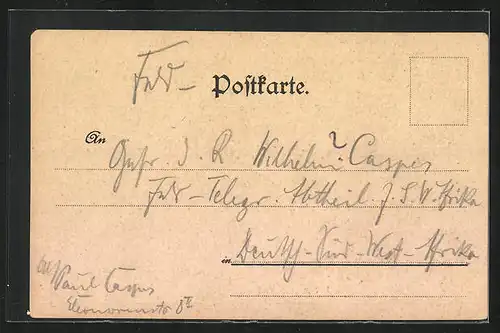 Feld- Postkarte.
An Gefr. d. R Wilhelm Casper
Feld-Telegr. Abtheil. f. S. W. Afrika
in Deutsch-Süd-West-Afrika
Paul Casper
8II